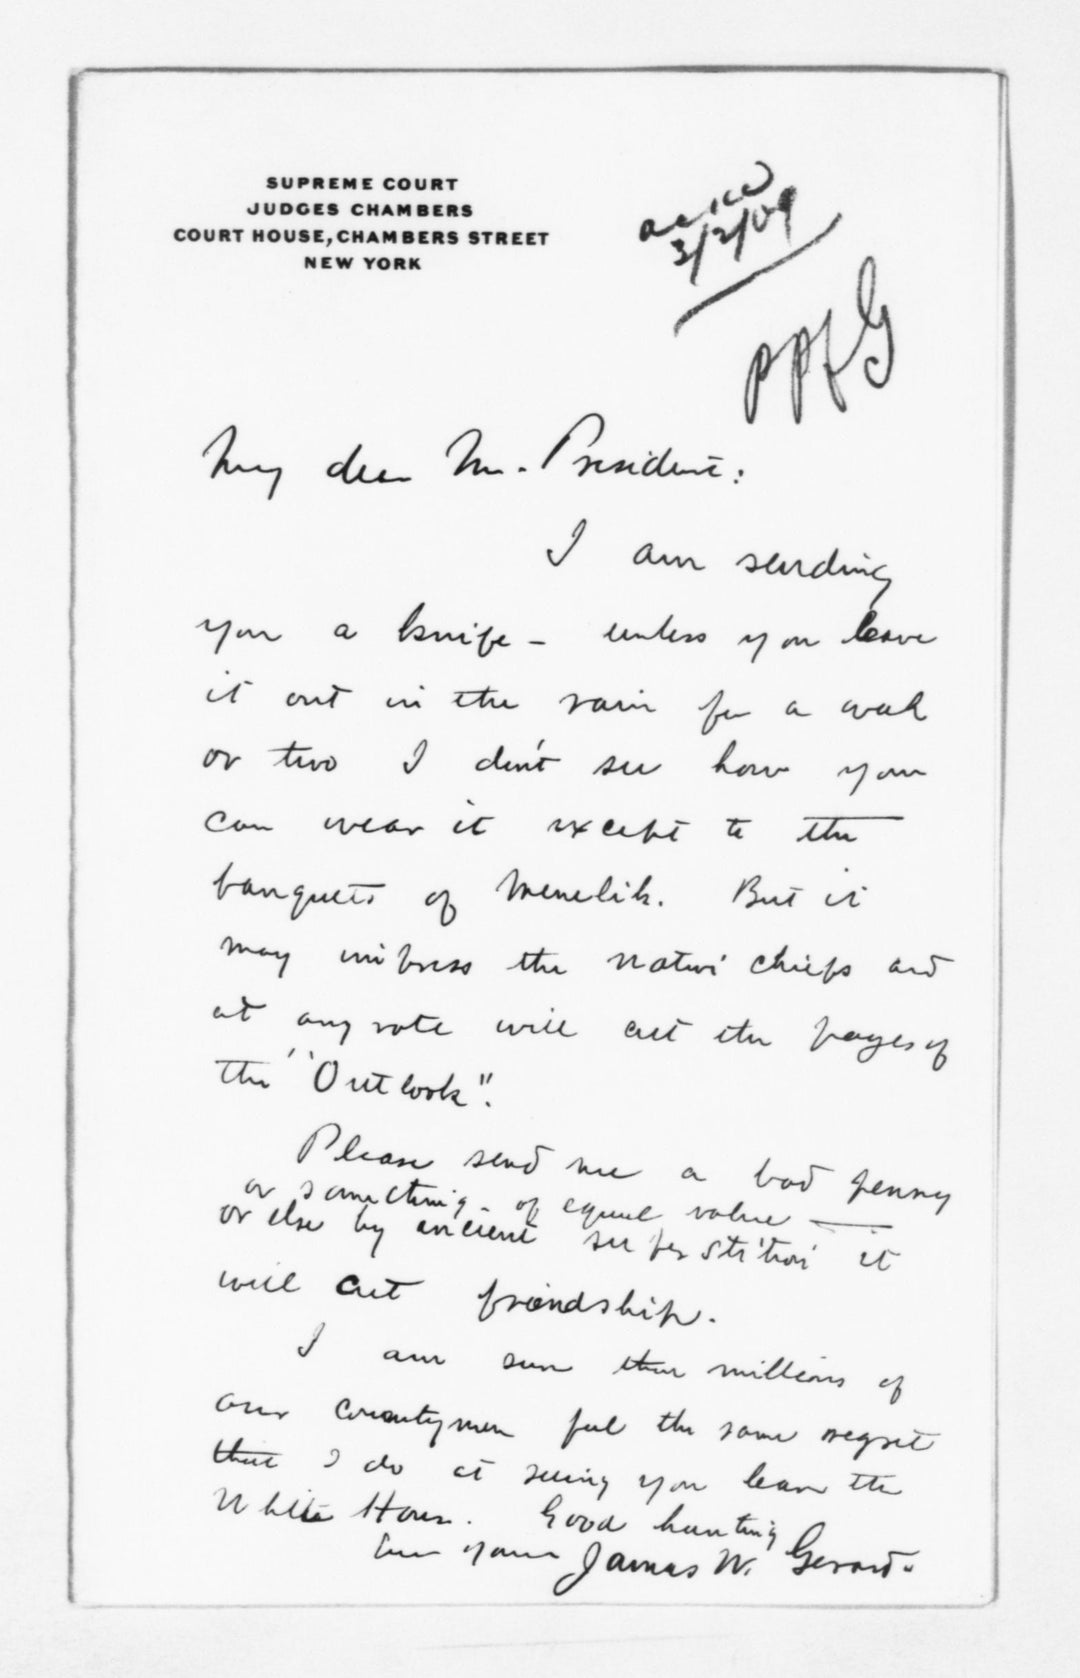 SUPREME COURT
JUDGES CHAMBERS
COURT HOUSE, CHAMBERS STREET
NEW YORK
ackd
3/2/09
PPF G
My dear Mr. President:
I am sending
you a knife - unless you leave
it out in the rain for a week
or two I don't see how you
can wear it except to the
banquets of Menelik. But it
may impress the native chiefs and
at any rate will cut the pages of
the "Outlook".
Please send me a bad penny
or something of equal value —
or else by ancient superstition it
will cut friendship.
I am sure that millions of
our countrymen feel the same regret
that I do at seeing you leave the
White House. Good hunting
Ever yours James W. Gerard.